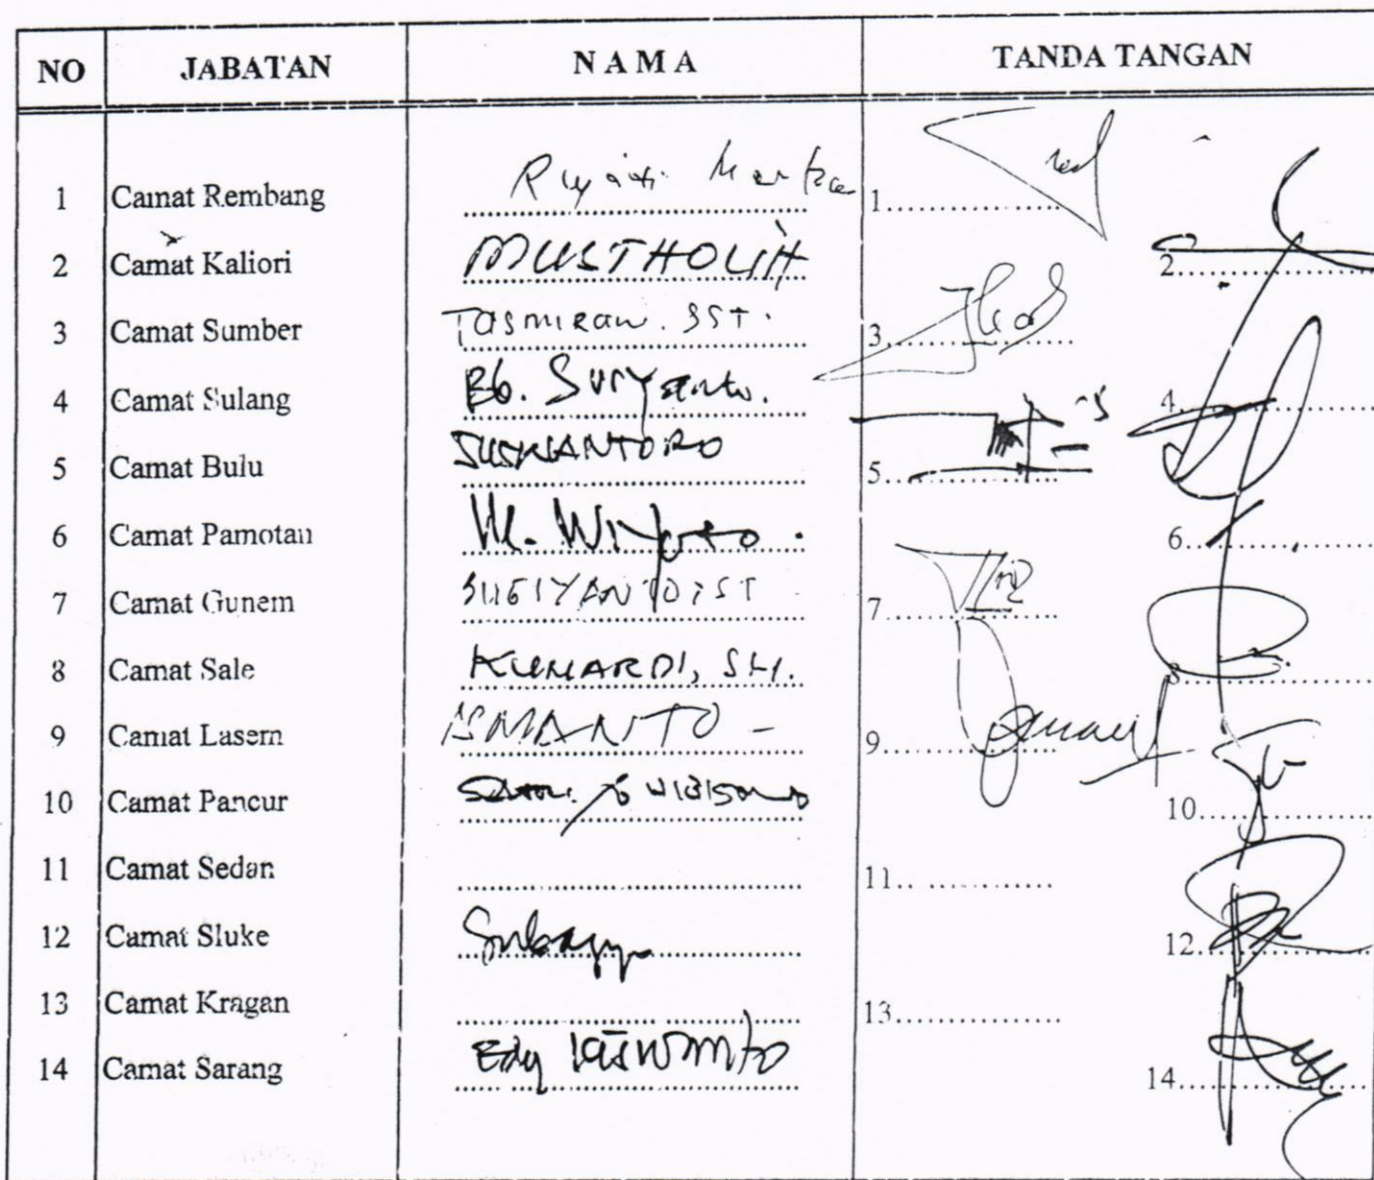 NO JABATAN NAMA TANDA TANGAN
1 Camat Rembang 1
2 Camat Kaliori MUSTHOLIH 2
3 Camat Sumber Tasmiran. SST. 3
4 Camat Sulang Bb. Suryanto. 4
5 Camat Bulu SUSWANTORO 5
6 Camat Pamotan M. Wiyoto. 6
7 Camat Gunem SUGIYANTO, ST 7
8 Camat Sale KUNARDI, SH. 8
9 Camat Lasem ISMANTO - 9
10 Camat Pancur WIBISONO 10
11 Camat Sedan 11
12 Camat Sluke Subagyo 12
13 Camat Kragan 13
14 Camat Sarang Edy Kiswanto 14